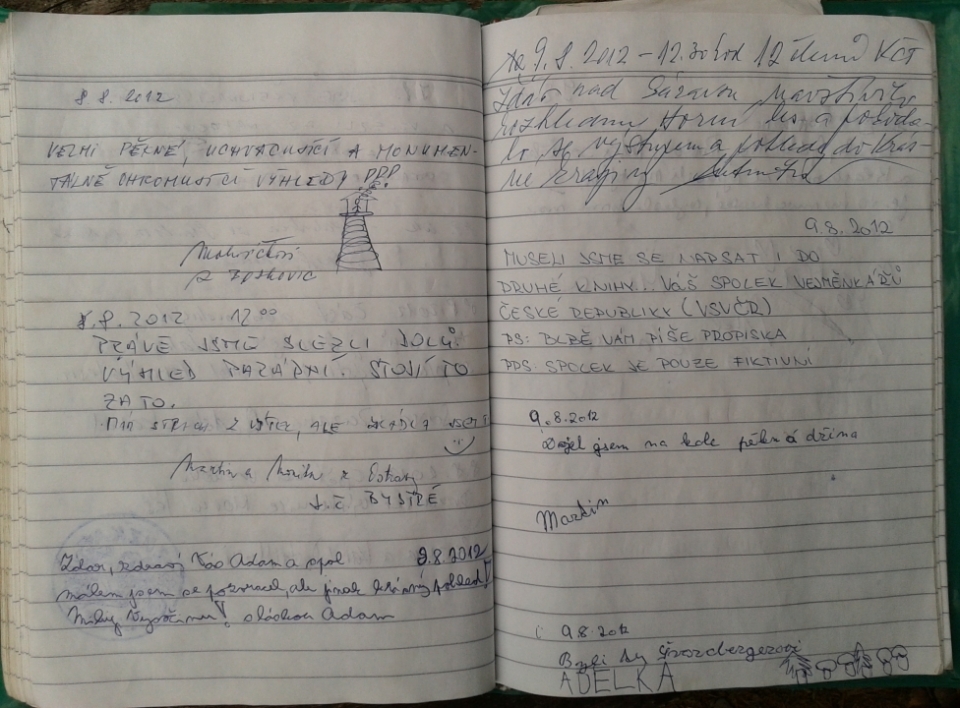 8 8. 2012
VELMI PĚKNÉ, UCHVACUJÍCÍ A MONUMEN-
TÁLNĚ OHROMUJÍCÍ VÝHLEDY !!!
z
8.8. 2012 12⁰⁰
PRÁVĚ JSME SLEZLI DOLŮ.
VÝHLED PARÁDNÍ. STOJÍ TO
ZA TO.
MÁ STRACH Z VÝŠEK, ALE
Martin a z
BYSTRÉ
Zdar, zdraví Vás Adam a spol 9.8.2012
málem jsem se pozvracel, ale jinak krásný pohled
Adam
9.8. 2012 - 12.30 hod 12 členů KČT
Žďár nad Sázavou navštívilo
rozhlednu Horní les a pokocha-
lo se výstupem a pohledy do krás-
né krajiny
9.8.2012
MUSELI JSME SE NAPSAT I DO
DRUHÉ KNIHY. VÁŠ SPOLEK VEJMĚNKÁŘŮ
ČESKÉ REPUBLIKY (VSVČR)
PS: BLBĚ VÁM PÍŠE PROPISKA
PPS: SPOLEK JE POUZE FIKTIVNÍ
9.8.2012
Dojel jsem na kole pěkná dřina
Martin
9.8.2012
Byli tu Švorzbergerovi
ADELKA